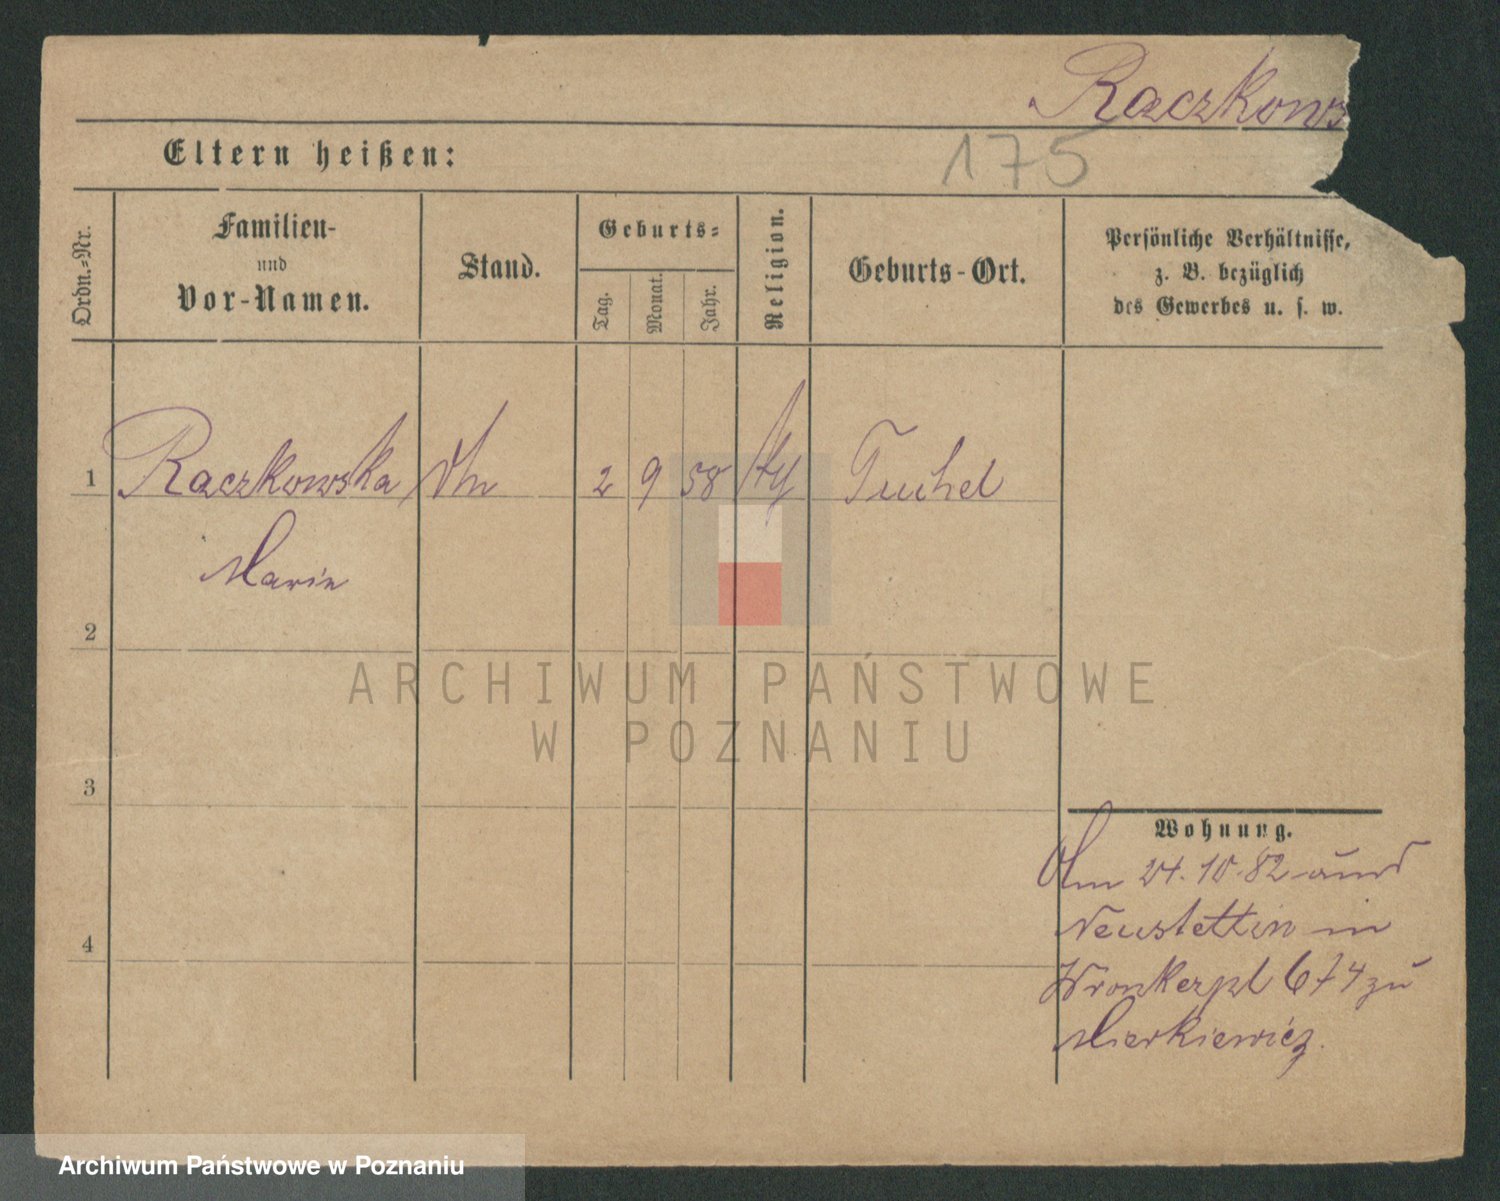 Raczkows
175
Eltern heißen:
Ordn.-Nr.
Familien-
und
Vor-Namen.
Stand.
Geburts-
Tag.
Monat.
Jahr.
Religion.
Geburts-Ort.
Persönliche Verhältnisse,
z. B. bezüglich
des Gewerbes u. s. w.
1 Raczkowska 2 9 58 Tuchel
Marie
2
3
4
ARCHIWUM PAŃSTWOWE
W POZNANIU
Wohnung.
24. 10. 82
Neustettin in
Wronkerpl 6 74 zu
Mierkiewicz.
Archiwum Państwowe w Poznaniu